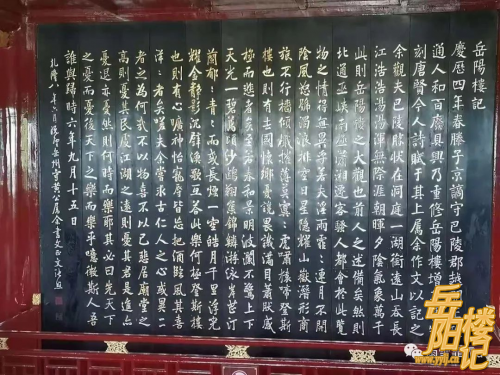 岳陽樓記
慶歷四年春滕子京謫守巴陵郡越
通人和百廢具興乃重修岳陽樓增
刻唐賢今人詩賦于其上屬余作文以記之
余觀夫巴陵勝狀在洞庭一湖銜遠山吞長
江浩浩湯湯橫無際涯朝暉夕陰氣象萬千
此則岳陽樓之大觀也前人之述備矣然則
北通巫峽南極瀟湘遷客騷人多會於此覽
物之情得無異乎若夫淫雨霏〻連月不開
陰風怒號濁浪排空日星隱耀山嶽潛形商
旅不行檣傾楫摧薄暮冥〻虎嘯猿啼登斯
樓也則有去國懷鄉憂讒畏譏滿目蕭然感
極而悲者矣至若春和景明波瀾不驚上下
天光一碧萬頃沙鷗翔集錦鱗游泳岸芷汀
蘭郁〻青〻而或長煙一空皓月千里浮光
耀金靜影沉璧漁歌互答此樂何極登斯樓
也則有心曠神怡寵辱皆忘把酒臨風其喜
洋〻者矣嗟夫余嘗求古仁人之心或異二
者之為何哉不以物喜不以己悲居廟堂之
高則憂其民處江湖之遠則憂其君是進亦
憂退亦憂然則何時而樂耶其必曰先天下
之憂而憂後天下之樂而樂乎噫微斯人吾
誰與歸時六年九月十五日
乾隆八年
岳陽樓記
www.yylj.cn